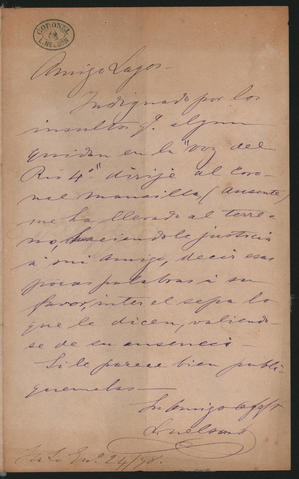 CORONEL
Amigo Lagos.
Indignado por los
insultos q. algun
en la "Voz del
Rio 4º" dirije al Coro-
nel Mansilla (Ausente)
me ha llevado al terre-
no, haciendole justicia
á mi amigo, decir esas
pocas palabras á su
favor, inter el sepa lo
que le dicen, valiendo-
se de su ausencia.
Si le parece bien publi-
quemelas—
Su amigo affo